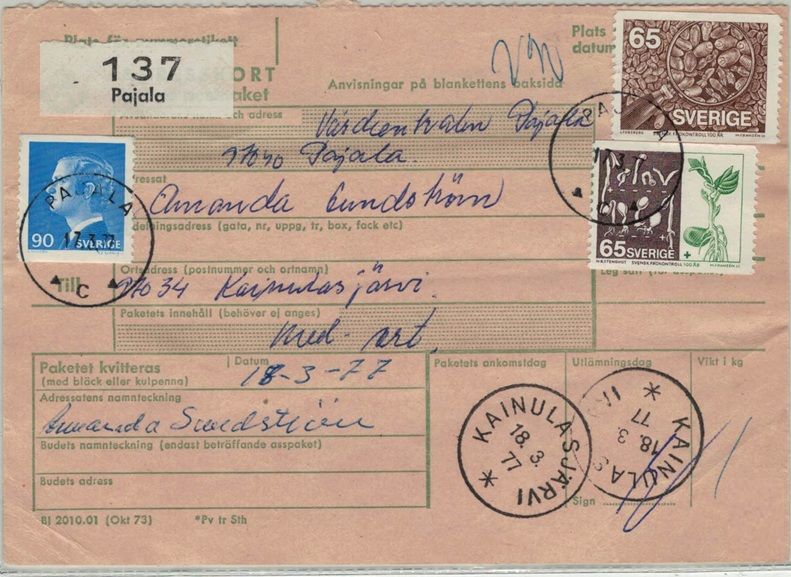 137
Pajala
Plats för nummerlapp
Plats
datum
KORT
paket
Anvisningar på blankettens baksida
65
SVERIGE
SVENSK FRÖKONTROLL 100 ÅR
Avsändarens namn och adress
Vårdcentralen Pajala
Pajala.
PAJALA
17.3.7
Amanda Lundström
90
SVERIGE
PAJALA
17.3.77
C
65 SVERIGE
SVENSK FRÖKONTROLL 100 ÅR
Utdelningsadress (gata, nr, uppg, tr, box, fack etc)
Till
Ortsadress (postnummer och ortnamn)
34 Kainulasjärvi.
Paketets innehåll (behöver ej anges)
Med. art.
Paketet kvitteras
(med bläck eller kulpenna)
Datum
18-3-77
Paketets ankomstdag
Utlämningsdag
Vikt i kg
Adressatens namnteckning
Amanda Lundström
KAINULASJÄRVI
18.3.
77
KAINULAS
18.3
77
Budets namnteckning (endast beträffande asspaket)
Budets adress
Sign
BI 2010.01 (Okt 73)
*Pv tr Sth